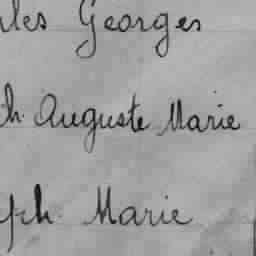 les Georges
h. Auguste Marie
ph. Marie